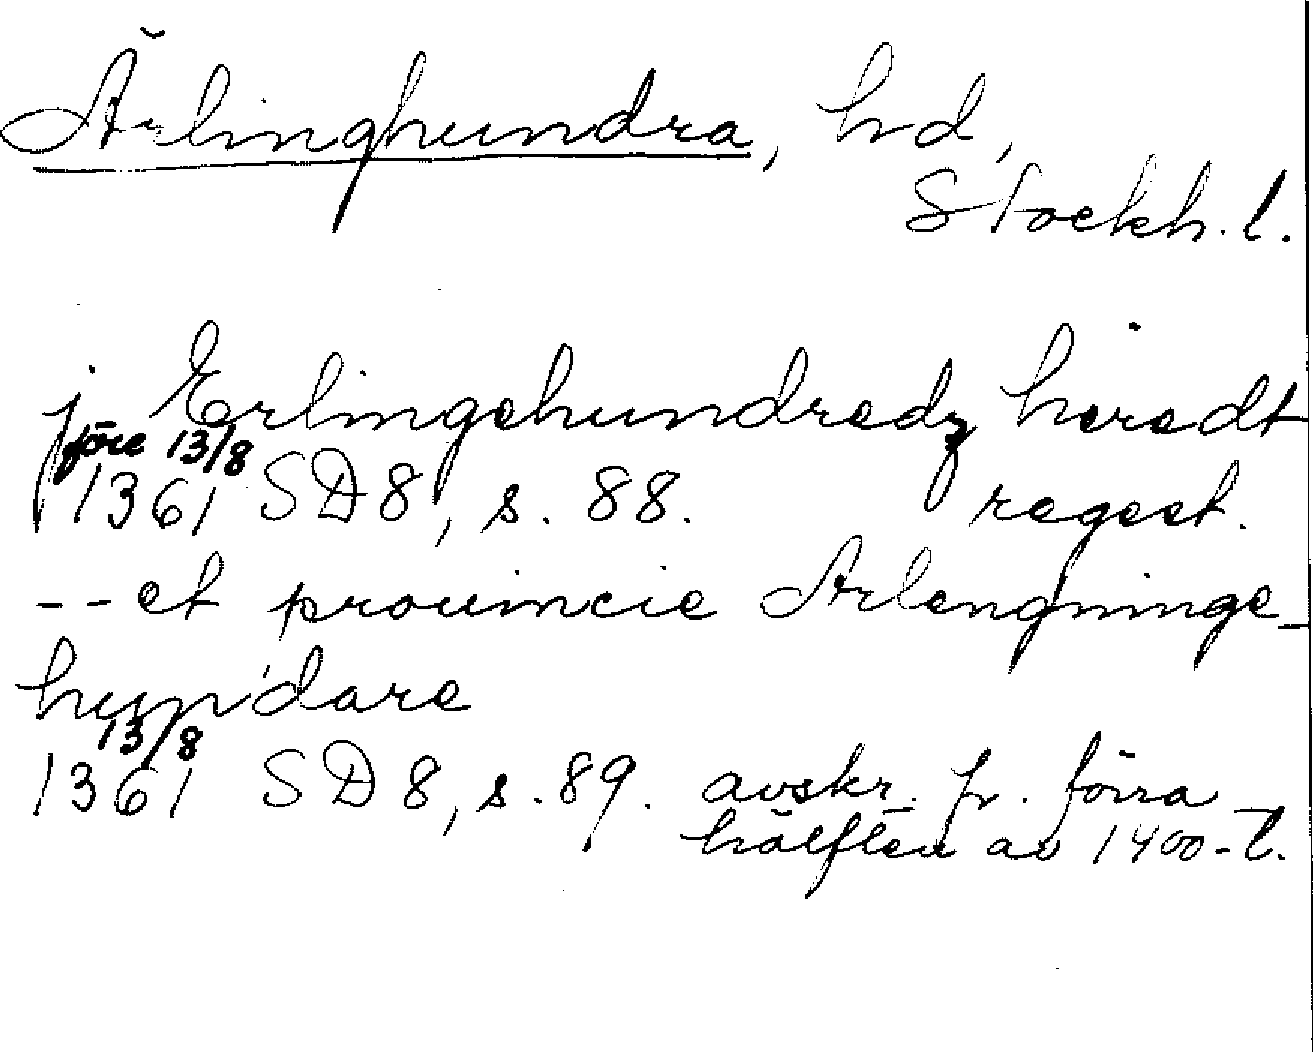 Ärlinghundra, hd,
Stockh. l.
j Erlingehundredz heredt
före 13/8
1361 SD 8, s. 88. regest.
-- et prouincie Arlengninge-
hundare
13/8
1361 SD 8, s. 89. avskr. fr. förra
hälften av 1400-t.